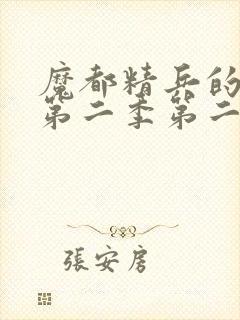 魔都精兵的
第二季第二
張安房